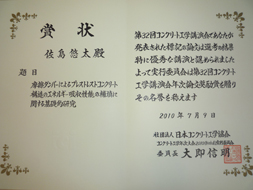 賞状
佐島悠太殿
題目
摩擦ダンパーによるプレストレストコンクリート
構造のエネルギー吸収性能の補強に
関する基礎的研究
第32回コンクリート工学講演会であなたが
発表された標記の論文は審査の結果
特に優秀な講演と認められました
よって実行委員会は第32回コンクリート
工学講演会年次論文奨励賞を贈り
その名誉を称えます
2010年7月9日
社団法人 日本コンクリート工学協会
委員長 大即信明